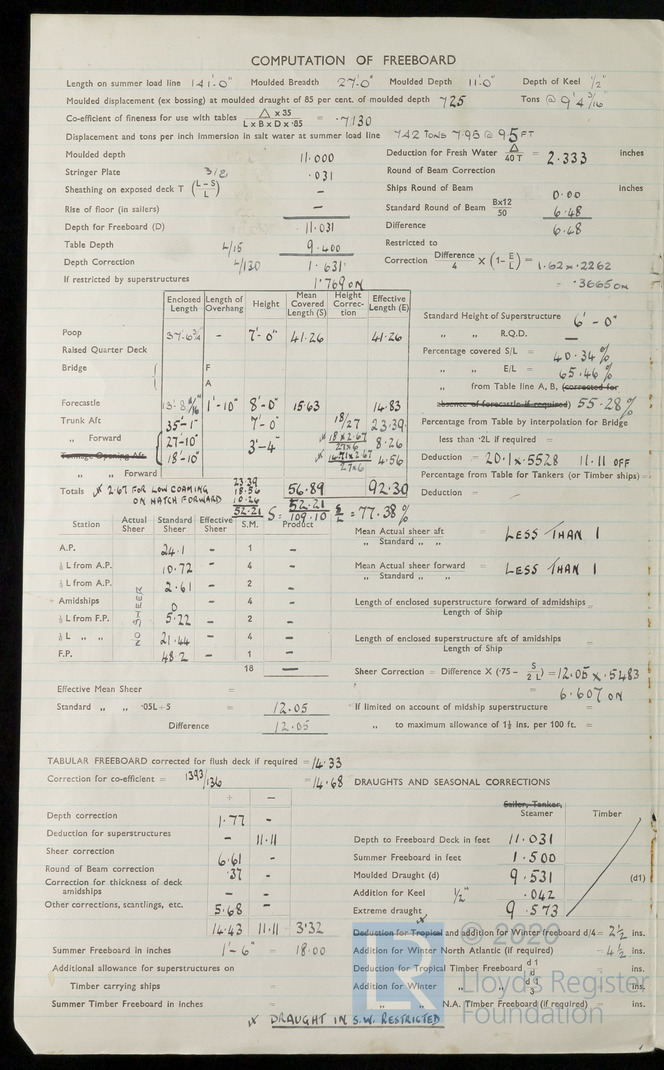 COMPUTATION OF FREEBOARD
Length on summer load line 141'-0" Moulded Breadth 27'-0" Moulded Depth 11'-0" Depth of Keel 1/2"
Moulded displacement (ex bossing) at moulded draught of 85 per cent. of moulded depth 725 Tons @ 9' 4 3/16"
Co-efficient of fineness for use with tables △ x 35 / L x B x D x ·85 = ·7130
Displacement and tons per inch immersion in salt water at summer load line 742 TONS 7·95 @ 9·5 FT
Moulded depth 11·000
Stringer Plate ·031
Sheathing on exposed deck T (L–S / L) –
Rise of floor (in sailers) –
Depth for Freeboard (D) 11·031
Table Depth L/15 9·400
Depth Correction L/130 1·631
If restricted by superstructures 1·769 ON
Deduction for Fresh Water △ / 40T = 2·333 inches
Round of Beam Correction
Ships Round of Beam 0·00 inches
Standard Round of Beam Bx12 / 50 6·48
Difference 6·48
Restricted to
Correction Difference / 4 X (1– E / L) = 1·62 x ·2262
= ·3665 ON
Enclosed Length Length of Overhang Height Mean Covered Length (S) Height Correction Effective Length (E)
Poop 37'·6 3/4 - 7'-0" 41·26 41·26
Raised Quarter Deck
Bridge F
A
Forecastle 1'-10" 8'-0" 15·63 14·83
Trunk Aft 35'-1" 7'-0" 18/27 23·39
" Forward 27-10" 3'-4" 18 x 2·67 / 27x6 8·26
Tonnage Opening Aft 18'-10" 4·56
" " Forward
Totals 2·67 FOR LOW COAMING ON HATCH FORWARD 23·39 18·56 10·26 52·21 56·89 52·21 92·30
S = 109·10 S/L = 77·38 %
Standard Height of Superstructure 6'-0"
" " R.Q.D. —
Percentage covered S/L = 40·34 %
" E/L = 65·46 %
" from Table line A, B, (corrected for absence of forecastle if required) 55·28 %
Percentage from Table by interpolation for Bridge less than ·2L if required =
Deduction = 20·1 x ·5528 11·11 OFF
Percentage from Table for Tankers (or Timber ships) =
Deduction = -
Station Actual Sheer Standard Sheer Effective Sheer S.M. Product
A.P. 24·1 - 1 -
1/6 L from A.P. 10·72 - 4 -
1/3 L from A.P. 2·61 - 2 -
Amidships 0 - 4 -
1/3 L from F.P. 5·22 - 2 -
1/6 L " " 21·44 - 4 -
F.P. 48·2 - 1 -
NO SHEER
18 —
Mean Actual Sheer aft / " Standard " " = LESS THAN 1
Mean Actual sheer forward / " Standard " " = LESS THAN 1
Length of enclosed superstructure forward of admidships / Length of Ship =
Length of enclosed superstructure aft of amidships / Length of Ship =
Sheer Correction = Difference X (·75 – S / 2L) = 12·05 x ·5483
= 6·607 ON
Effective Mean Sheer =
Standard " " ·05L+5 = 12·05
Difference 12·05
If limited on account of midship superstructure =
" to maximum allowance of 1½ ins. per 100 ft. =
TABULAR FREEBOARD corrected for flush deck if required = 14·33
Correction for co-efficient = 1·393/1·36 = 14·68
+ –
Depth correction 1·77 -
Deduction for superstructures - 11·11
Sheer correction 6·61 -
Round of Beam correction ·37 -
Correction for thickness of deck amidships - -
Other corrections, scantlings, etc. 5·68 -
14·43 11·11 3·32
Summer Freeboard in inches 1'-6" = 18·00
Additional allowance for superstructures on
Timber carrying ships =
Summer Timber Freeboard in inches =
DRAUGHTS AND SEASONAL CORRECTIONS
Sailer, Tanker, Steamer Timber
Depth to Freeboard Deck in feet 11·031
Summer Freeboard in feet 1·500
Moulded Draught (d) 9·531 (d1)
Addition for Keel 1/2" ·042
Extreme draught 9·573
Deduction for Tropical and addition for Winter freeboard d/4= 2½ ins.
Addition for Winter North Atlantic (if required) = 4½ ins.
Deduction for Tropical Timber Freeboard d1 / 4 = ins.
Addition for Winter " " d1 / 3 = ins.
" " N.A. Timber Freeboard (if required) = ins.
x DRAUGHT IN S.W. RESTRICTED
© 2020
LR
Lloyd's Register
Foundation